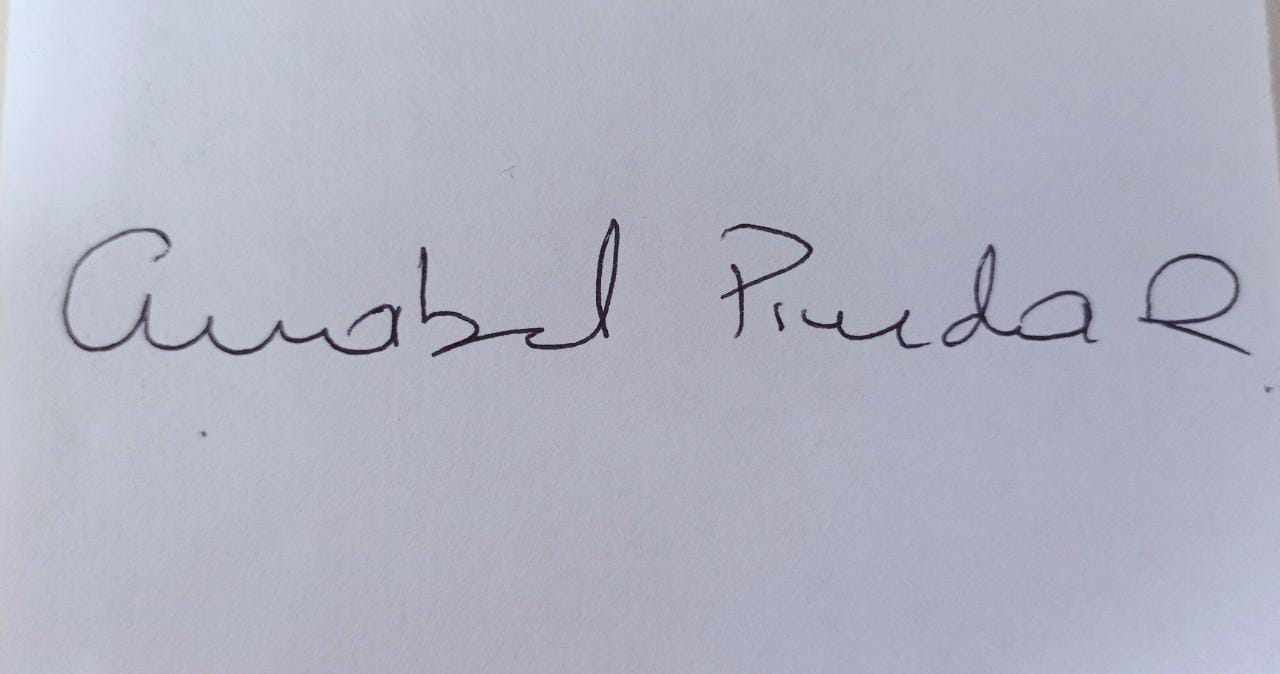 Anabel Pineda R